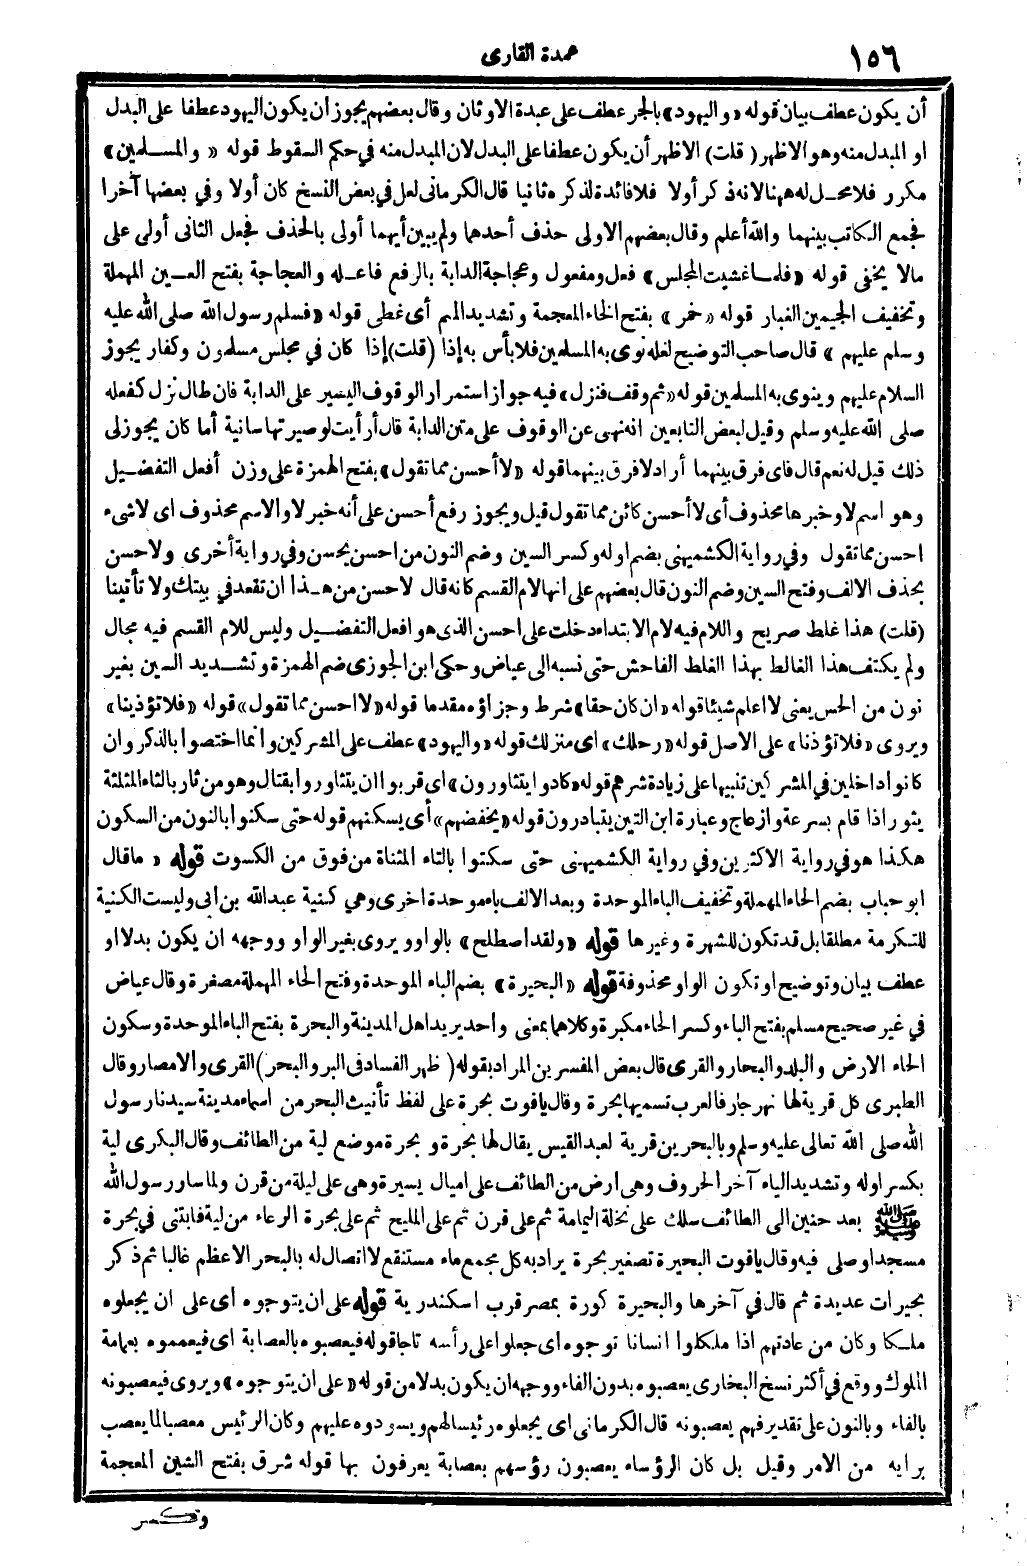 ١٥٦
عمدة القارى
أن يكون عطف بيان قوله «واليهود» بالجر عطف على عبدة الاوثان وقال بعضهم يجوز أن يكون اليهود عطفا على البدل
او المبدل منه وهو الاظهر (قلت) الاظهر أن يكون عطفا على البدل لان المبدل منه في حكم السقوط قوله « والمسلمين»
مكرر فلا محل له ههنا لانه ذكر أولا فلا فائدة لذكره ثانيا قال الكرمانى لعل في بعض النسخ كان أولا وفي بعضها آخرا
فجمع الكاتب بينهما والله أعلم وقال بعضهم الاولى حذف أحدها ولم يبين أيهما أولى بالحذف فجعل الثانى أولى على
مالا يخفى قوله «فلما غشيت المجلس» فعل ومفعول وعجاجة الدابة بالرفع فاعله والعجاجة بفتح العين المهملة
وتخفيف الجيمين الغبار قوله «خمر» بفتح الخاء المعجمة وتشديد الميم أى غطى قوله «فسلم رسول الله صلى الله عليه
وسلم عليهم » قال صاحب التوضيح لعله نوى به المسلمين فلا بأس به إذا (قلت) إذا كان في مجلس مسلمون وكفار يجوز
السلام عليهم وينوى به المسلمين قوله «ثم وقف فنزل» فيه جواز استمرار الوقوف اليسير على الدابة فان طال نزل كفعله
صلى الله عليه وسلم وقيل لبعض التابعين انه نهى عن الوقوف على متن الدابة قال أرأيت لو صيرتها سانية أما كان يجوز لى
ذلك قيل له نعم قال فاى فرق بينهما أراد لا فرق بينهما قوله «لا أحسن مما تقول» بفتح الهمزة على وزن أفعل التفضيل
وهو اسم لا وخبرها محذوف أى لا أحسن كائن مما تقول قيل ويجوز رفع أحسن على أنه خبر لا والاسم محذوف اى لا شىء
احسن مما تقول وفي رواية الكشميهنى بضم اوله وكسر السين وضم النون من احسن يحسن وفي رواية أخرى ولا حسن
بحذف الالف وفتح السين وضم النون قال بعضهم على انها لام القسم كانه قال لا حسن من هذا ان تقعد في بيتك ولا تأتينا
(قلت) هذا غلط صريح واللام فيه لام الابتداء دخلت على احسن الذى هو افعل التفضيل وليس للام القسم فيه مجال
ولم يكتف هذا الغالط بهذا الغلط الفاحش حتى نسبه الى عياض وحكى ابن الجوزى ضم الهمزة وتشديد السين بغير
نون من الحس يعنى لا اعلم شيئا قوله «ان كان حقا» شرط وجزاؤه مقدما قوله «لا احسن مما تقول» قوله «فلا تؤذينا»
ويروى «فلا تؤذنا» على الاصل قوله «رحلك» اى منزلك قوله «واليهود» عطف على المشركين وانما اختصوا بالذكر وان
كانوا داخلين في المشركين تنبيها على زيادة شرهم قوله «كادوا يتثاورون» اى قربوا ان يتثاوروا بقتال وهو من ثار بالثاء المثلثة
يثور اذا قام بسرعة وازعاج وعبارة ابن التين يتبادرون قوله «يخفضهم» أى يسكنهم قوله حتى سكنوا بالنون من السكون
هكذا هو في رواية الاكثرين وفي رواية الكشميهنى حتى سكتوا بالتاء المثناة من فوق من الكسوت قوله « ماقال
ابو حباب بضم الحاء المهملة وتخفيف الباء الموحدة وبعد الالف باء موحدة اخرى وهي كنية عبدالله بن ابى وليست الكنية
للتكرمة مطلقا بل قد تكون للشهرة وغيرها قوله «ولقد اصطلح» بالواو ويروى بغير الواو ووجهه ان يكون بدلا او
عطف بيان وتوضيح او تكون الواو محذوفة قوله «البحيرة» بضم الباء الموحدة وفتح الحاء المهملة مصغرة وقال عياض
في غير صحيح مسلم بفتح الباء وكسر الحاء مكبرة وكلاهما بمعنى واحد يريد اهل المدينة والبحرة بفتح الباء الموحدة وسكون
الحاء الارض والبلد والبحار والقرى قال بعض المفسرين المراد بقوله (ظهر الفساد فى البر والبحر) القرى والامصار وقال
الطبرى كل قرية لها نهر جار فالعرب تسميها بحرة وقال ياقوت بحرة على لفظ تأنيث البحر من اسماء مدينة سيدنا رسول
الله صلى الله تعالى عليه وسلم وبالبحرين قرية لعبد القيس يقال لها بحرة و بحرة موضع لية من الطائف وقال البكرى لية
بكسر اوله وتشديد الياء آخر الحروف وهى ارض من الطائف على اميال يسيرة وهى على ليلة من قرن ولما سار رسول الله
ﷺ بعد حنين الى الطائف سلك على نخلة اليمامة ثم على قرن ثم على المليح ثم على بحرة الرعاء من لية فابتنى في بحرة
مسجدا وصلى فيه وقال ياقوت البحيرة تصغير بحرة يراد به كل مجمع ماء مستنقع لا اتصال له بالبحر الاعظم غالبا ثم ذكر
بحيرات عديدة ثم قال في آخرها والبحيرة كورة بمصر قرب اسكندرية قوله على ان يتوجوه اى على ان يجعلوه
ملكا وكان من عادتهم اذا ملكوا انسانا توجوه اى جعلوا على رأسه تاجا قوله فيعصبوه بالعصابة اى فيعمموه بعمامة
الملوك ووقع في أكثر نسخ البخارى يعصبوه بدون الفاء ووجهه ان يكون بدلا من قوله «على ان يتوجوه» ويروى فيعصبونه
بالفاء وبالنون على تقدير فهم يعصبونه قال الكرمانى اى يجعلوه رئيسا لهم ويسودوه عليهم وكان الرئيس معصبا لما يعصب
برايه من الامر وقيل بل كان الرؤساء يعصبون رؤسهم بعصابة يعرفون بها قوله شرق بفتح الشين المعجمة
وكسر